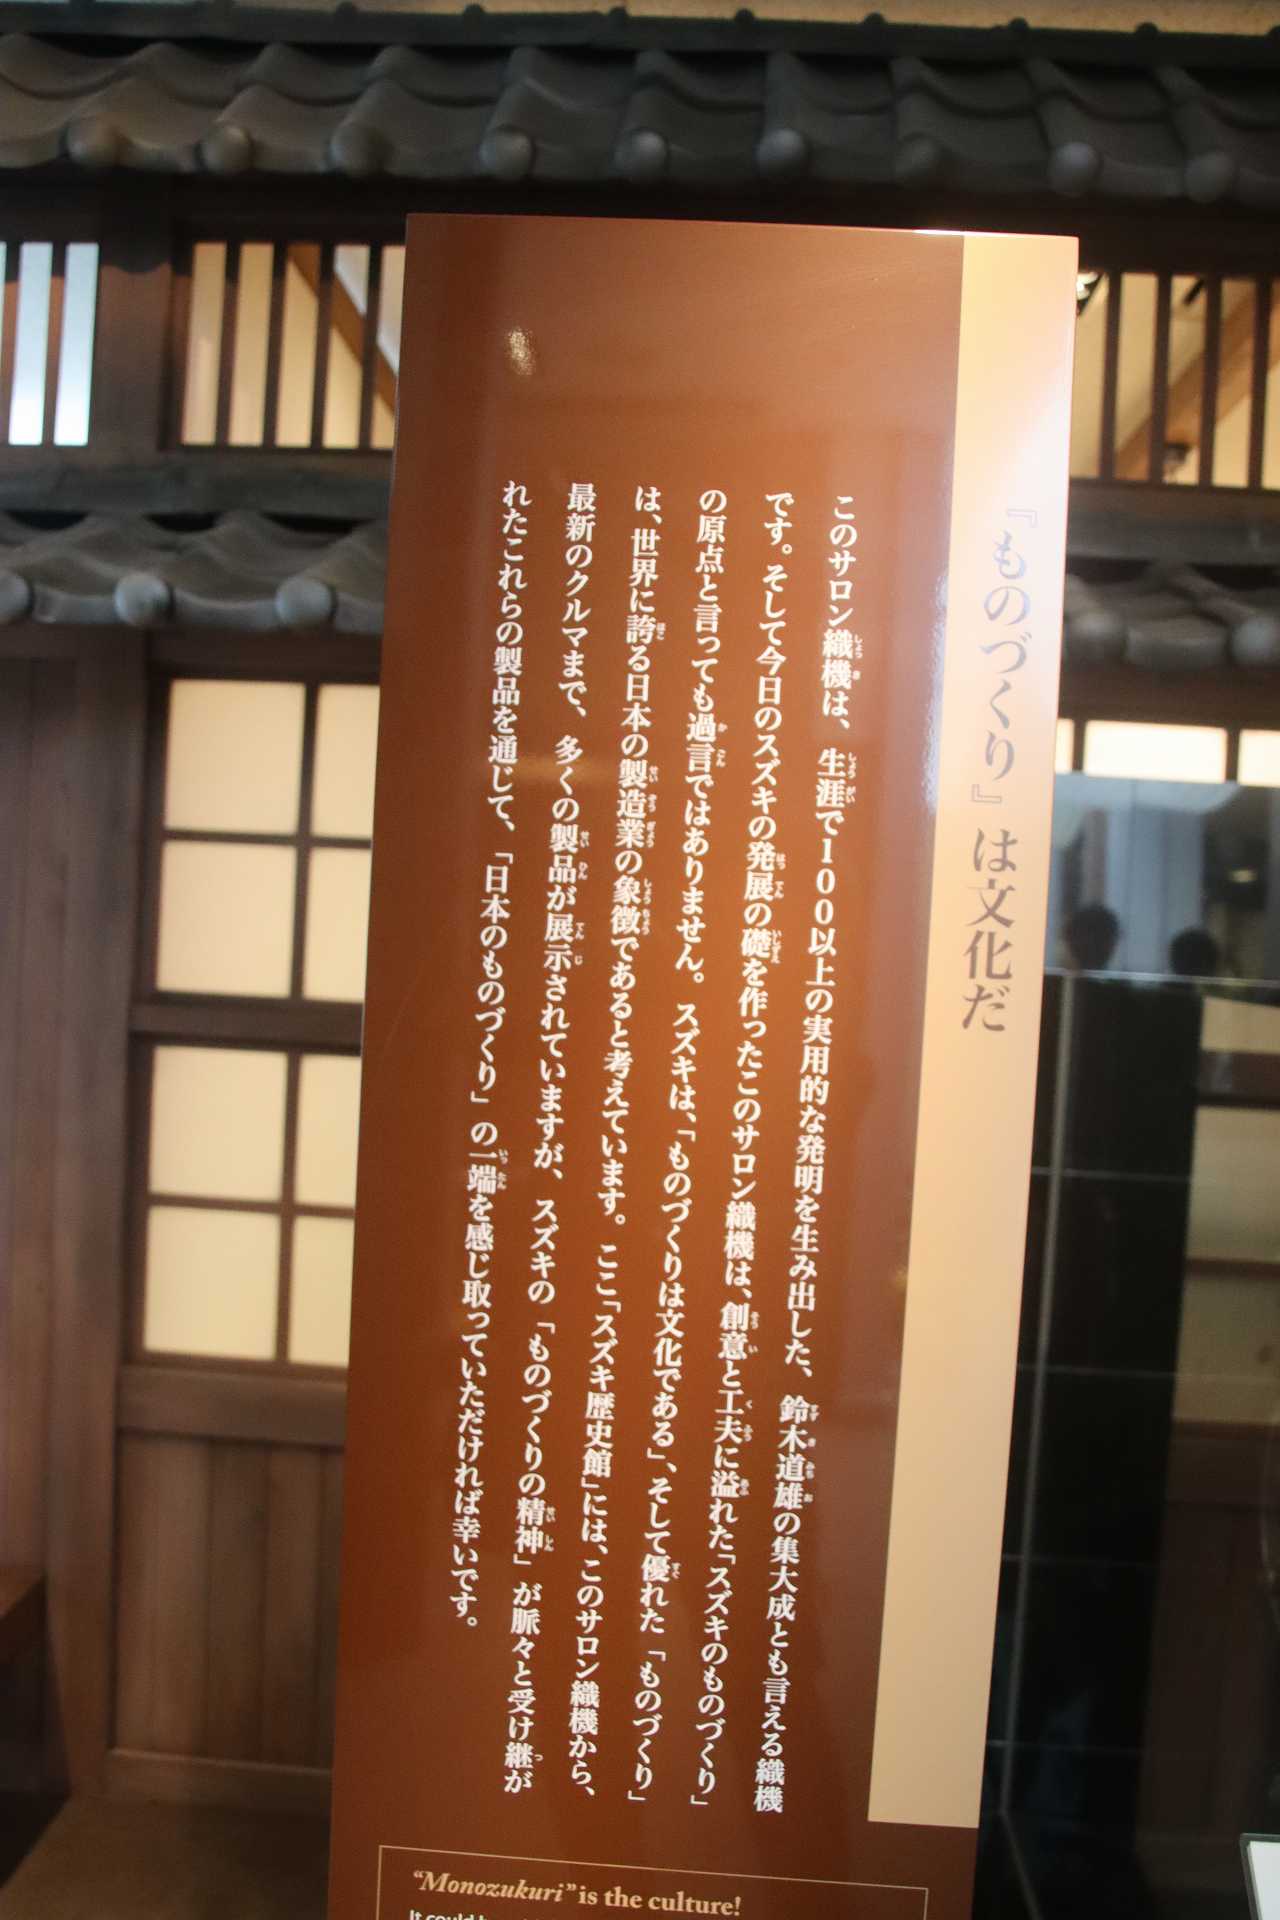 『ものづくり』は文化だ
このサロン織機は、生涯で100以上の実用的な発明を生み出した、鈴木道雄の集大成とも言える織機
です。そして今日のスズキの発展の礎を作ったこのサロン織機は、創意と工夫に溢れた「スズキのものづくり」
の原点と言っても過言ではありません。スズキは、「ものづくりは文化である」、そして優れた「ものづくり」
は、世界に誇る日本の製造業の象徴であると考えています。ここ「スズキ歴史館」には、このサロン織機から、
最新のクルマまで、多くの製品が展示されていますが、スズキの「ものづくりの精神」が脈々と受け継が
れたこれらの製品を通じて、「日本のものづくり」の一端を感じ取っていただければ幸いです。
“Monozukuri” is the culture!
It could